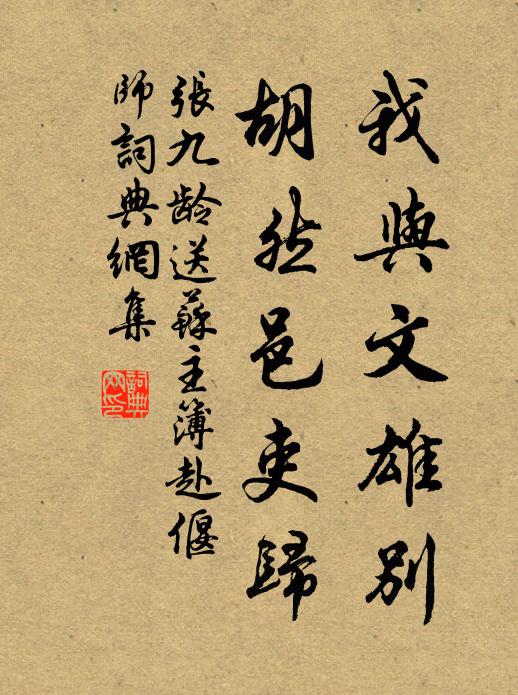 我與文雄別
胡然邑吏歸
張九龄送蘇主簿赴偃
師詞典網集
詞典
网印